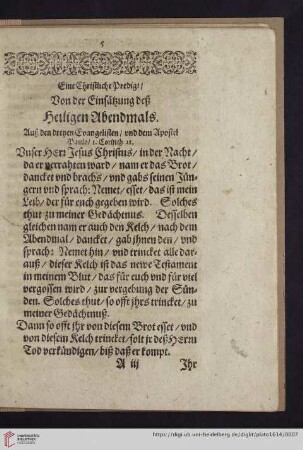 5
Eine Christliche Predigt/
Von der Einsätzung deß
Heiligen Abendmals.
Auß den dreyen Evangelisten/ vnd dem Apostel
Paulo/ 1. Corinth 11.
Vnser HErr Jesus Christus/ in der Nacht/
da er verrahten ward/ nam er das Brot/
dancket vnd brachs/ vnd gabs seinen Jün-
gern vnd sprach: Nemet/ esset/ das ist mein
Leib/ der für euch gegeben wird. Solches
thut zu meiner Gedächtnus. Desselben
gleichen nam er auch den Kelch/ nach dem
Abendmal/ dancket/ gab ihnen den/ vnd
sprach: Nemet hin/ vnd trincket alle dar-
auß/ dieser Kelch ist das newe Testament
in meinem Blut/ das für euch vnd für viel
vergossen wird/ zur vergebung der Sün-
den. Solches thut/ so offt jhrs trincket/ zu
meiner Gedächtnuß.
Dann so offt jhr von diesem Brot esset/ vnd
von diesem Kelch trincket/ solt jr deß HErrn
Tod verkündigen/ biß daß er kompt.
A iij Ihr
https://digi.ub.uni-heidelberg.de/diglit/plato1614/0007
UNIVERSITÄTS-
BIBLIOTHEK
HEIDELBERG